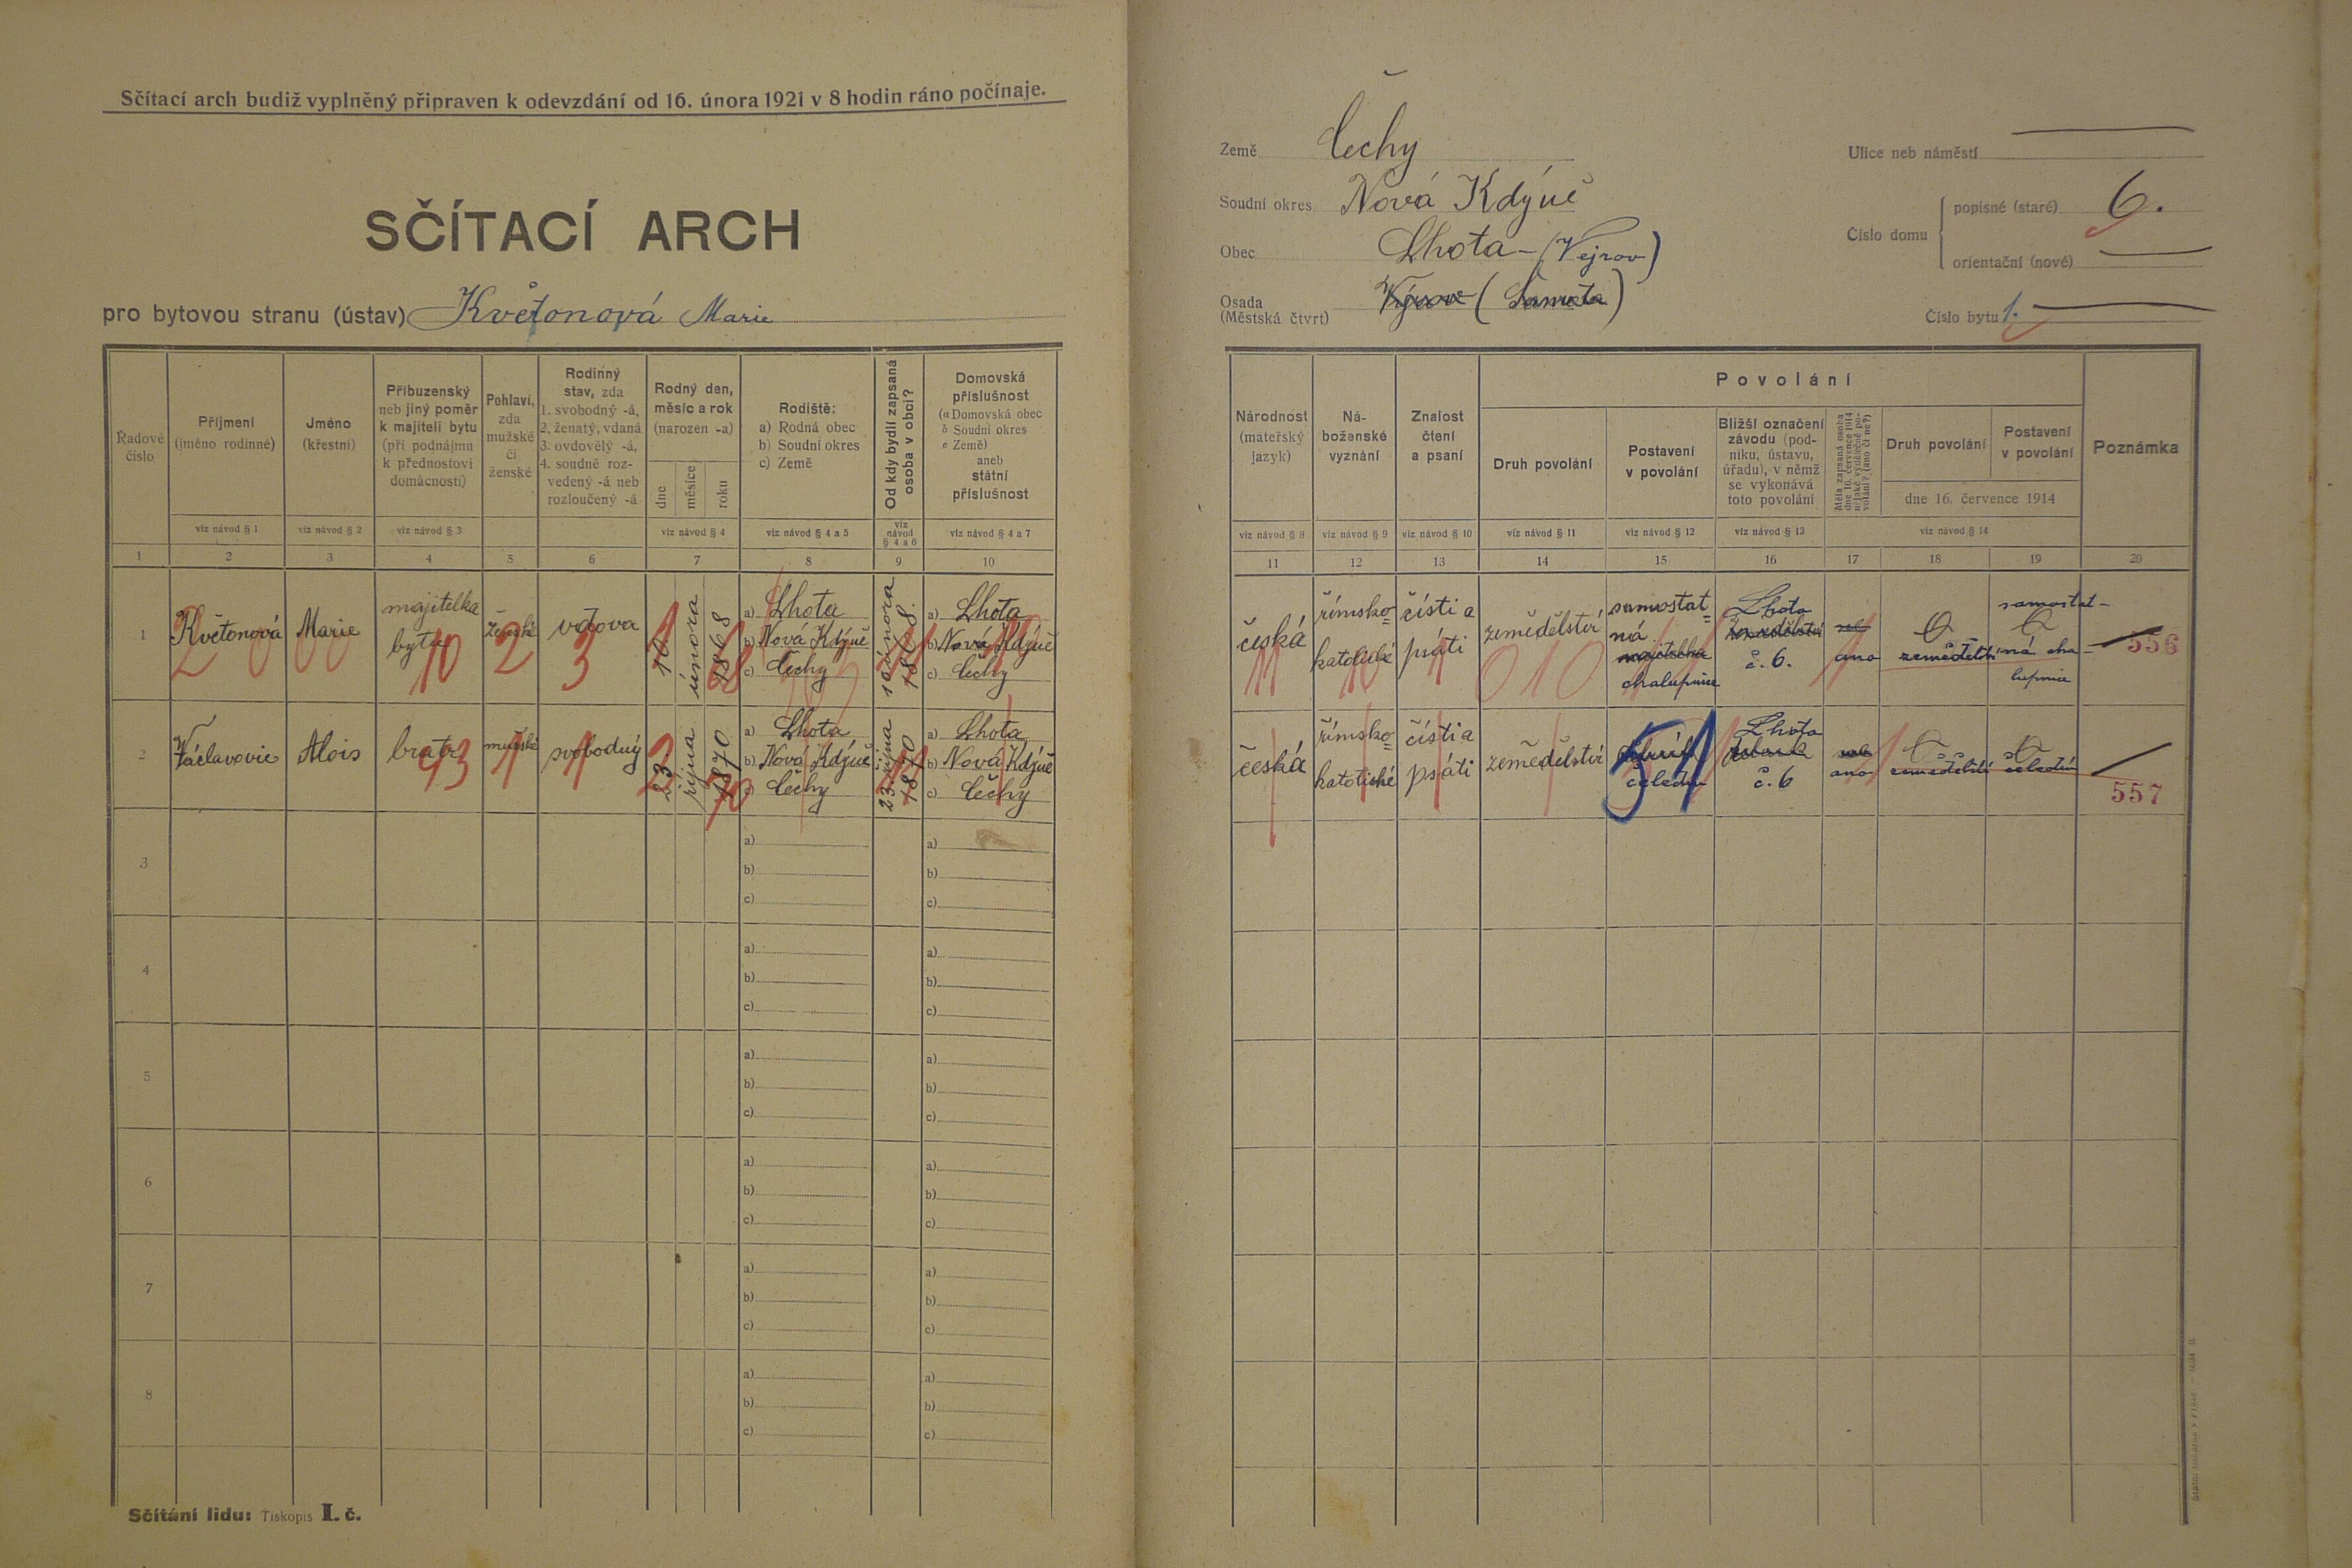 Sčítací arch budiž vyplněný připraven k odevzdání od 16. února 1921 v 8 hodin ráno počínaje.
SČÍTACÍ ARCH
pro bytovou stranu (ústav) Květonová Marie
Řadové číslo
Příjmení
(jméno rodinné)
Jméno
(křestní)
Příbuzenský
neb jiný poměr
k majiteli bytu
(při podnájmu
k přednostovi
domácnosti)
Pohlaví,
zda
mužské
či
ženské
Rodinný
stav, zda
1. svobodný -á,
2. ženatý, vdaná
3. ovdovělý -á,
4. soudně roz-
vedený -á neb
rozloučený -á
Rodný den,
měsíc a rok
(narozen -a)
dne
měsíce
roku
Rodiště:
a) Rodná obec
b) Soudní okres
c) Země
Od kdy bydlí zapsaná
osoba v obci?
Domovská
příslušnost
(a Domovská obec
b Soudní okres
c Země)
aneb
státní
příslušnost
viz návod § 1
viz návod § 2
viz návod § 3
viz návod § 4
viz návod § 4 a 5
viz návod § 4 a 6
viz návod § 4 a 7
1 2 3 4 5 6 7 8 9 10
1
Květonová
Marie
majitelka
bytu
ženské
vdova
10
února
1868
a) Lhota
b) Nová Kdýně
c) Čechy
10 února
1868.
a) Lhota
b) Nová Kdýně
c) Čechy
2 0 0 0 0 10 2 3
2
Václavovic
Alois
bratr
mužské
svobodný
23
října
1870
a) Lhota
b) Nová Kdýně
c) Čechy
23 října
1870
a) Lhota
b) Nová Kdýně
c) Čechy
3
a)
b)
c)
a)
b)
c)
4
a)
b)
c)
a)
b)
c)
5
a)
b)
c)
a)
b)
c)
6
a)
b)
c)
a)
b)
c)
7
a)
b)
c)
a)
b)
c)
8
a)
b)
c)
a)
b)
c)
Sčítání lidu: Tiskopis I. č.
Země Čechy
Soudní okres Nová Kdýně
Obec Lhota - (Vejrov)
Osada
(Městská čtvrt) Výrov (Samota)
Ulice neb náměstí
Číslo domu
popisné (staré) 6.
orientační (nové)
Číslo bytu 1.
Národnost
(mateřský
jazyk)
Ná-
boženské
vyznání
Znalost
čtení
a psaní
Povolání
Druh povolání
Postavení
v povolání
Bližší označení
závodu (pod-
niku, ústavu,
úřadu), v němž
se vykonává
toto povolání
Měla zapsaná osoba
dne 16. července 1914
nějaké výdělečné po-
volání? (ano či ne?)
Druh povolání
Postavení
v povolání
dne 16. července 1914
Poznámka
viz návod § 8
viz návod § 9
viz návod § 10
viz návod § 11
viz návod § 12
viz návod § 13
viz návod § 14
11 12 13 14 15 16 17 18 19 20
česká
římsko=
katolické
čísti a
psáti
zemědělství
samostat=
ná
majitelka
chalupnice
Lhota
zemědělství
č. 6.
ano
zemědělství
samostat-
ná cha-
lupnice
556
010
česká
římsko=
katolické
čísti a
psáti
zemědělství
čeledín
51
Lhota
č. 6
ano
zemědělství
čeledín
557